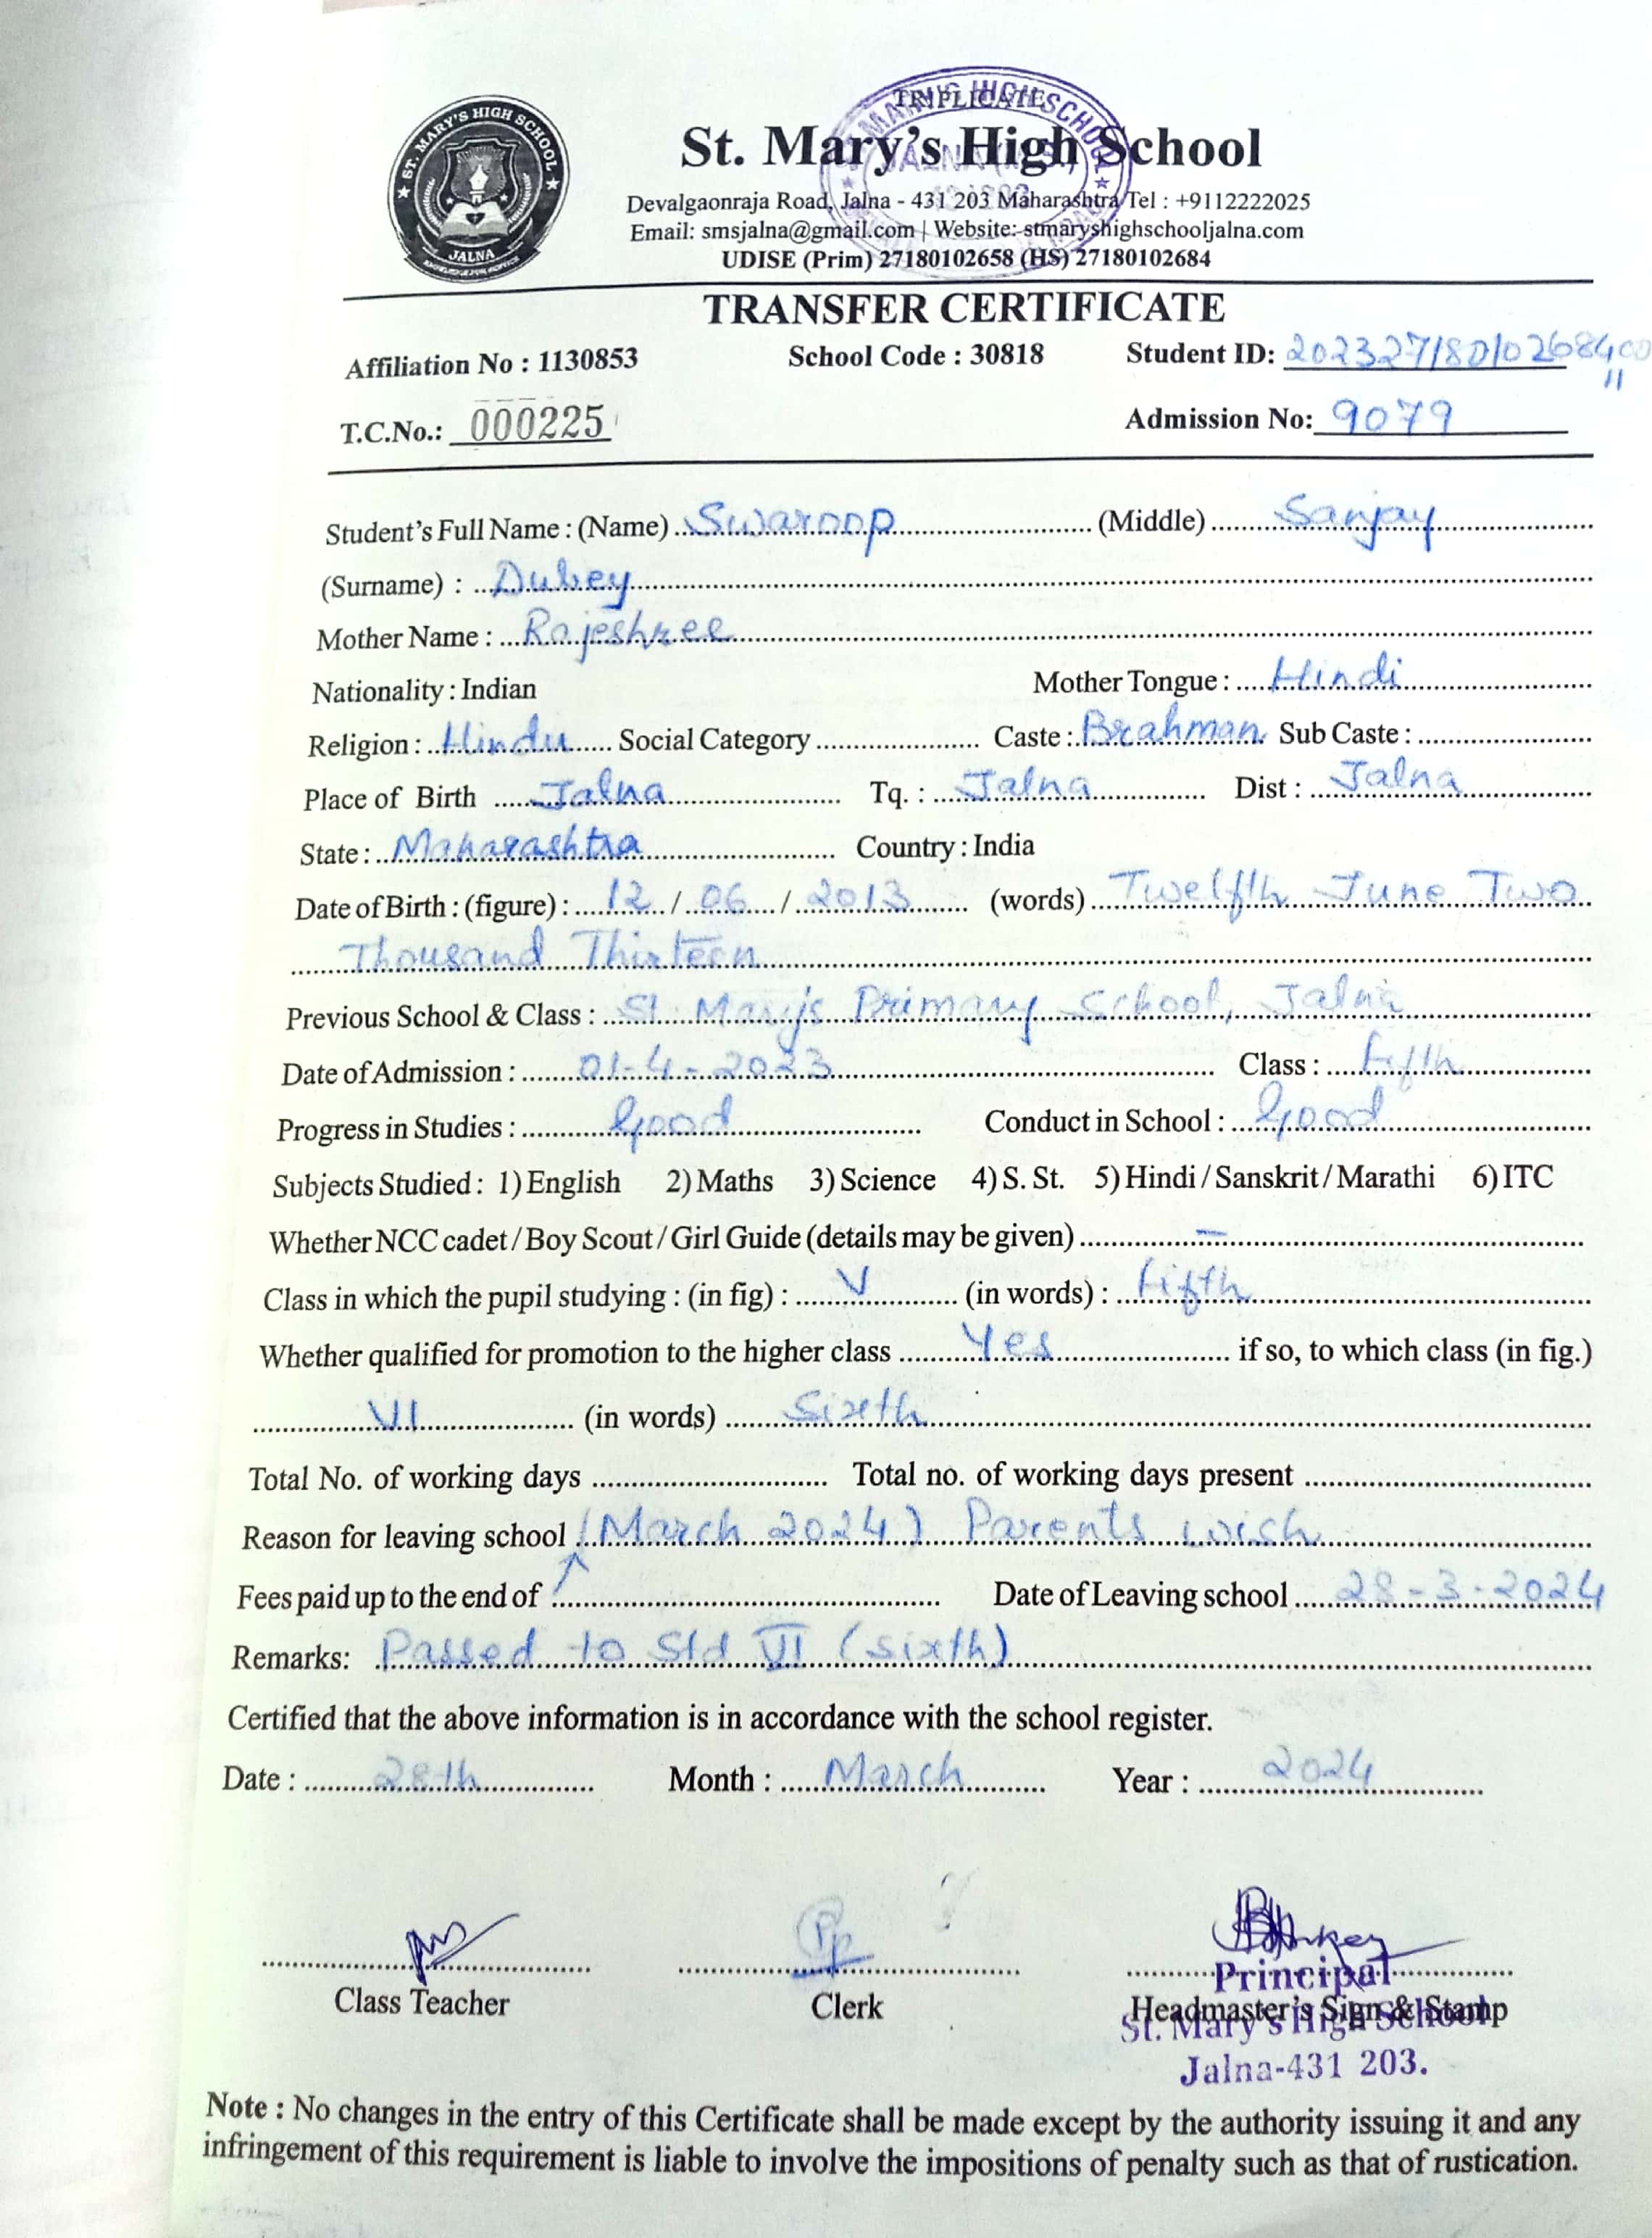 TRIPLICATE
ST. MARY'S HIGH SCHOOL
JALNA
St. Mary's High School
Devalgaonraja Road, Jalna - 431 203 Maharashtra Tel : +9112222025
Email: smsjalna@gmail.com | Website:-stmaryshighschooljalna.com
UDISE (Prim) 27180102658 (HS) 27180102684
TRANSFER CERTIFICATE
Affiliation No : 1130853 School Code : 30818 Student ID:
T.C.No.: 000225 Admission No: 9079
Student's Full Name : (Name) Swaroop (Middle) Sanjay
(Surname) : Dubey
Mother Name : Rajeshree
Nationality : Indian Mother Tongue : Hindi
Religion : Hindu Social Category Caste : Brahman Sub Caste :
Place of Birth Jalna Tq. : Jalna Dist : Jalna
State : Maharashtra Country : India
Date of Birth : (figure) : 12 / 06 / 2013 (words) Twelfth June Two
Thousand Thirteen
Previous School & Class : St. Mary's Primary School, Jalna
Date of Admission : 01-4-2023 Class : Fifth
Progress in Studies : Good Conduct in School : Good
Subjects Studied : 1) English 2) Maths 3) Science 4) S. St. 5) Hindi / Sanskrit / Marathi 6) ITC
Whether NCC cadet / Boy Scout / Girl Guide (details may be given) —
Class in which the pupil studying : (in fig) : V (in words) : Fifth
Whether qualified for promotion to the higher class Yes if so, to which class (in fig.)
VI (in words) Sixth
Total No. of working days Total no. of working days present
Reason for leaving school (March 2024) Parents wish
Fees paid up to the end of Date of Leaving school 28-3-2024
Remarks: Passed to Std VI (sixth)
Certified that the above information is in accordance with the school register.
Date : 28th Month : March Year : 2024
Class Teacher Clerk Headmaster's Sign & Stamp
Principal
St. Mary's High School
Jalna-431 203.
Note : No changes in the entry of this Certificate shall be made except by the authority issuing it and any
infringement of this requirement is liable to involve the impositions of penalty such as that of rustication.